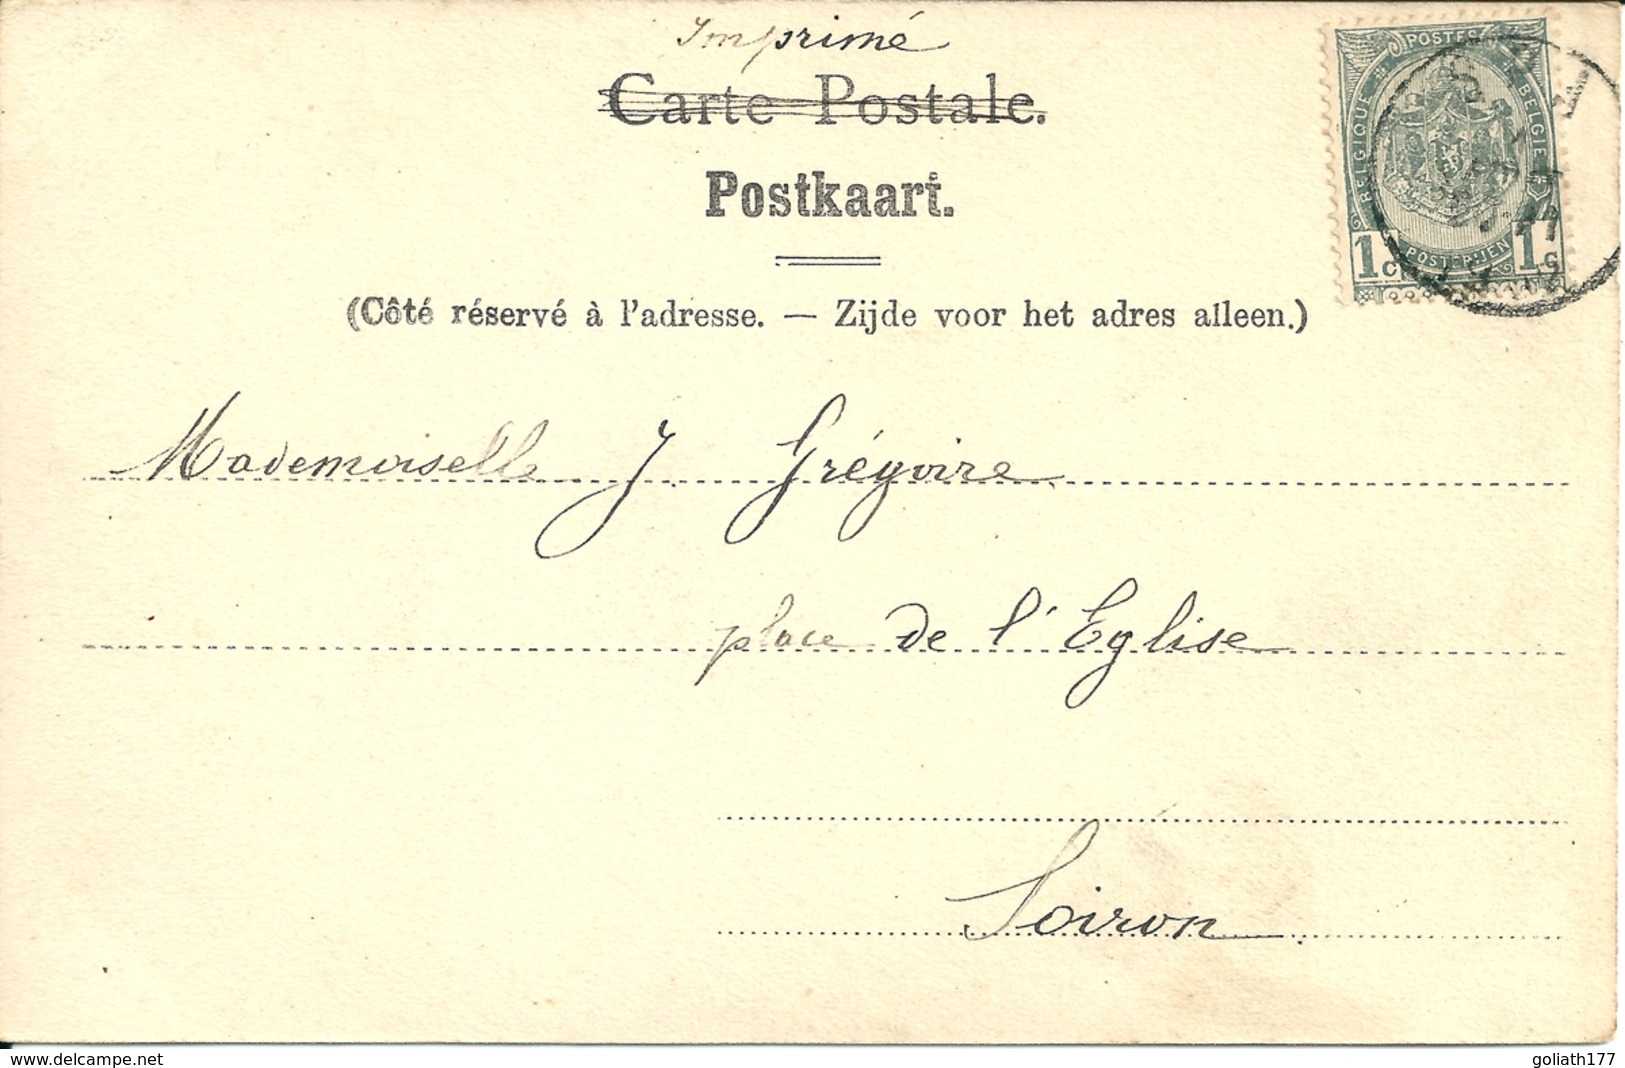 Imprimé
Carte Postale.
Postkaart.
(Côté réservé à l'adresse. — Zijde voor het adres alleen.)
POSTES
BELGIQUE
BELGIE
POSTERIJEN
1 C
1 C
Mademoiselle J. Grégoire
place de l'Eglise
Soiron
www.delcampe.net
goliath177